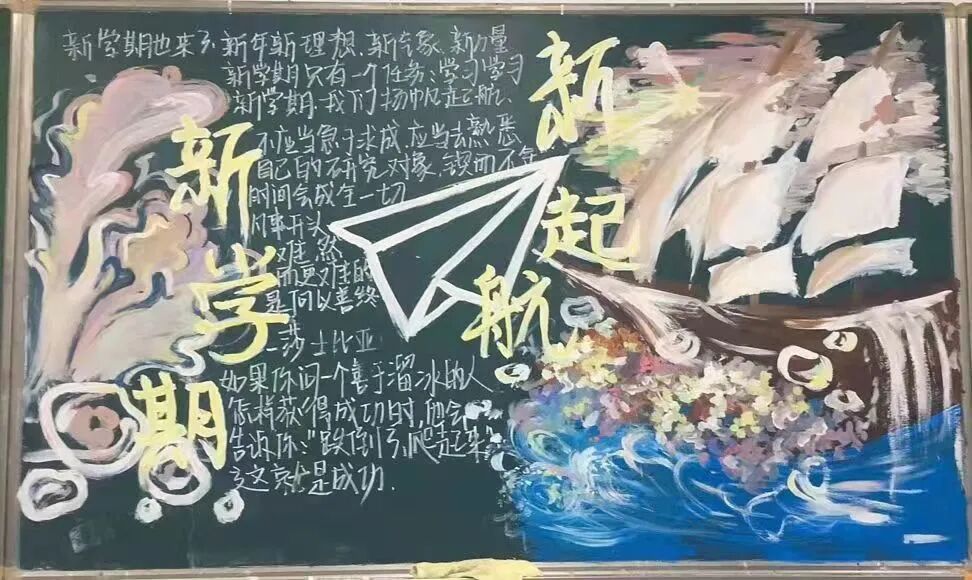 新学期也来了.新年新理想、新气象、新力量
新学期只有一个任务:学习学习
新学期.我们扬帆起航、
不应当急于求成,应当去熟悉
自己的研究对象,锲而不舍
时间会成全一切
凡事开头
难 然
而更难的
是何以善终
-莎士比亚
如果你问一个善于溜冰的人
怎样获得成功时,他会
告诉你:"跌倒了,爬起来"
这就是成功.
新学期
新起航